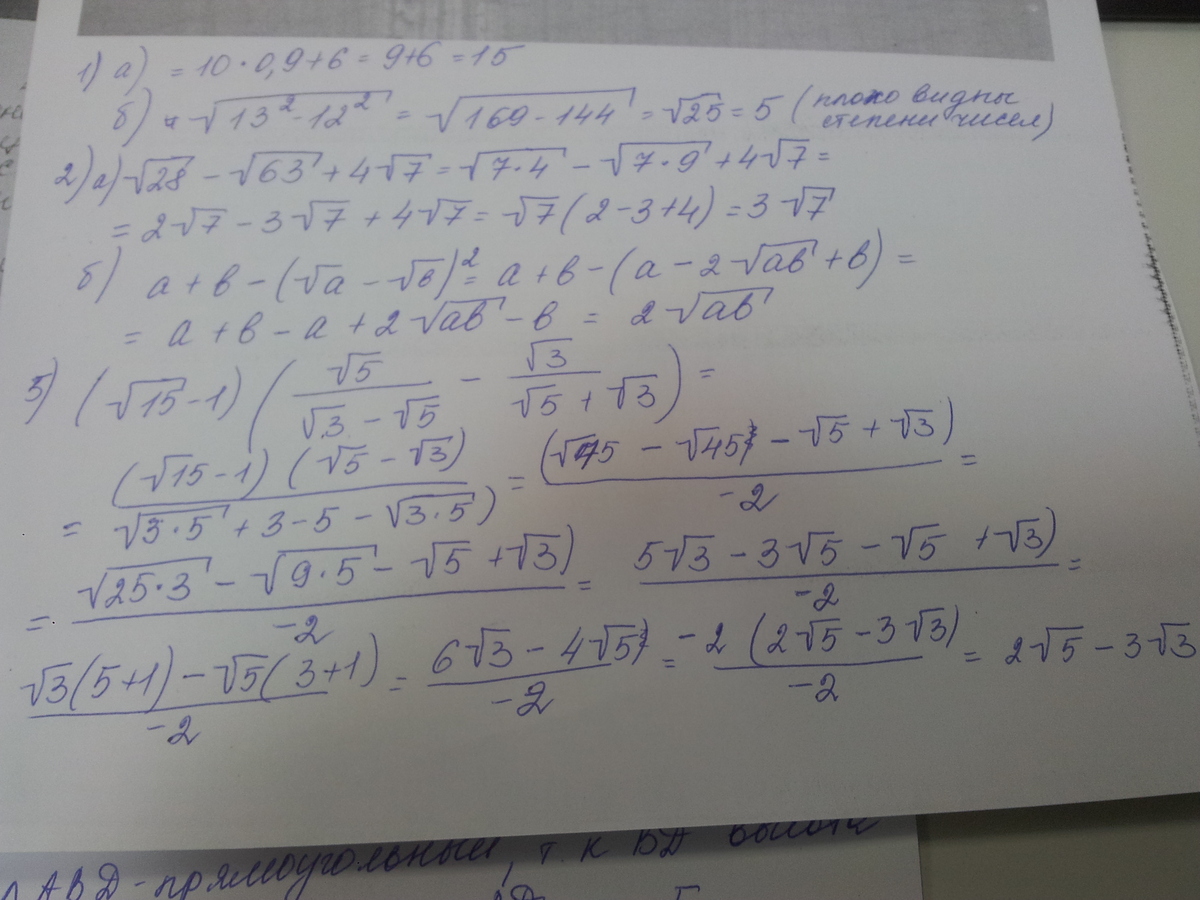 1) а) = 10 · 0,9 + 6 = 9 + 6 = 15
б) √(13² - 12²) = √(169 - 144) = √25 = 5 (плохо видны
степени чисел)
2) а) √28 - √63 + 4√7 = √(7·4) - √(7·9) + 4√7 =
= 2√7 - 3√7 + 4√7 = √7 (2 - 3 + 4) = 3√7
б) а + в - (√а - √в)² = а + в - (а - 2√ав + в) =
= а + в - а + 2√ав - в = 2√ав
3) (√15 - 1) (√5/(√3 - √5) - √3/(√5 + √3)) =
= (√15 - 1) (√5 - √3)/(√(3·5) + 3 - 5 - √(3·5)) = (√75 - √45 - √5 + √3)/-2 =
= (√(25·3) - √(9·5) - √5 + √3)/-2 = (5√3 - 3√5 - √5 + √3)/-2 =
(√3(5+1) - √5(3+1))/-2 = (6√3 - 4√5)/-2 = -2 (2√5 - 3√3)/-2 = 2√5 - 3√3
АВД - прямоугольный, т.к ВД высота